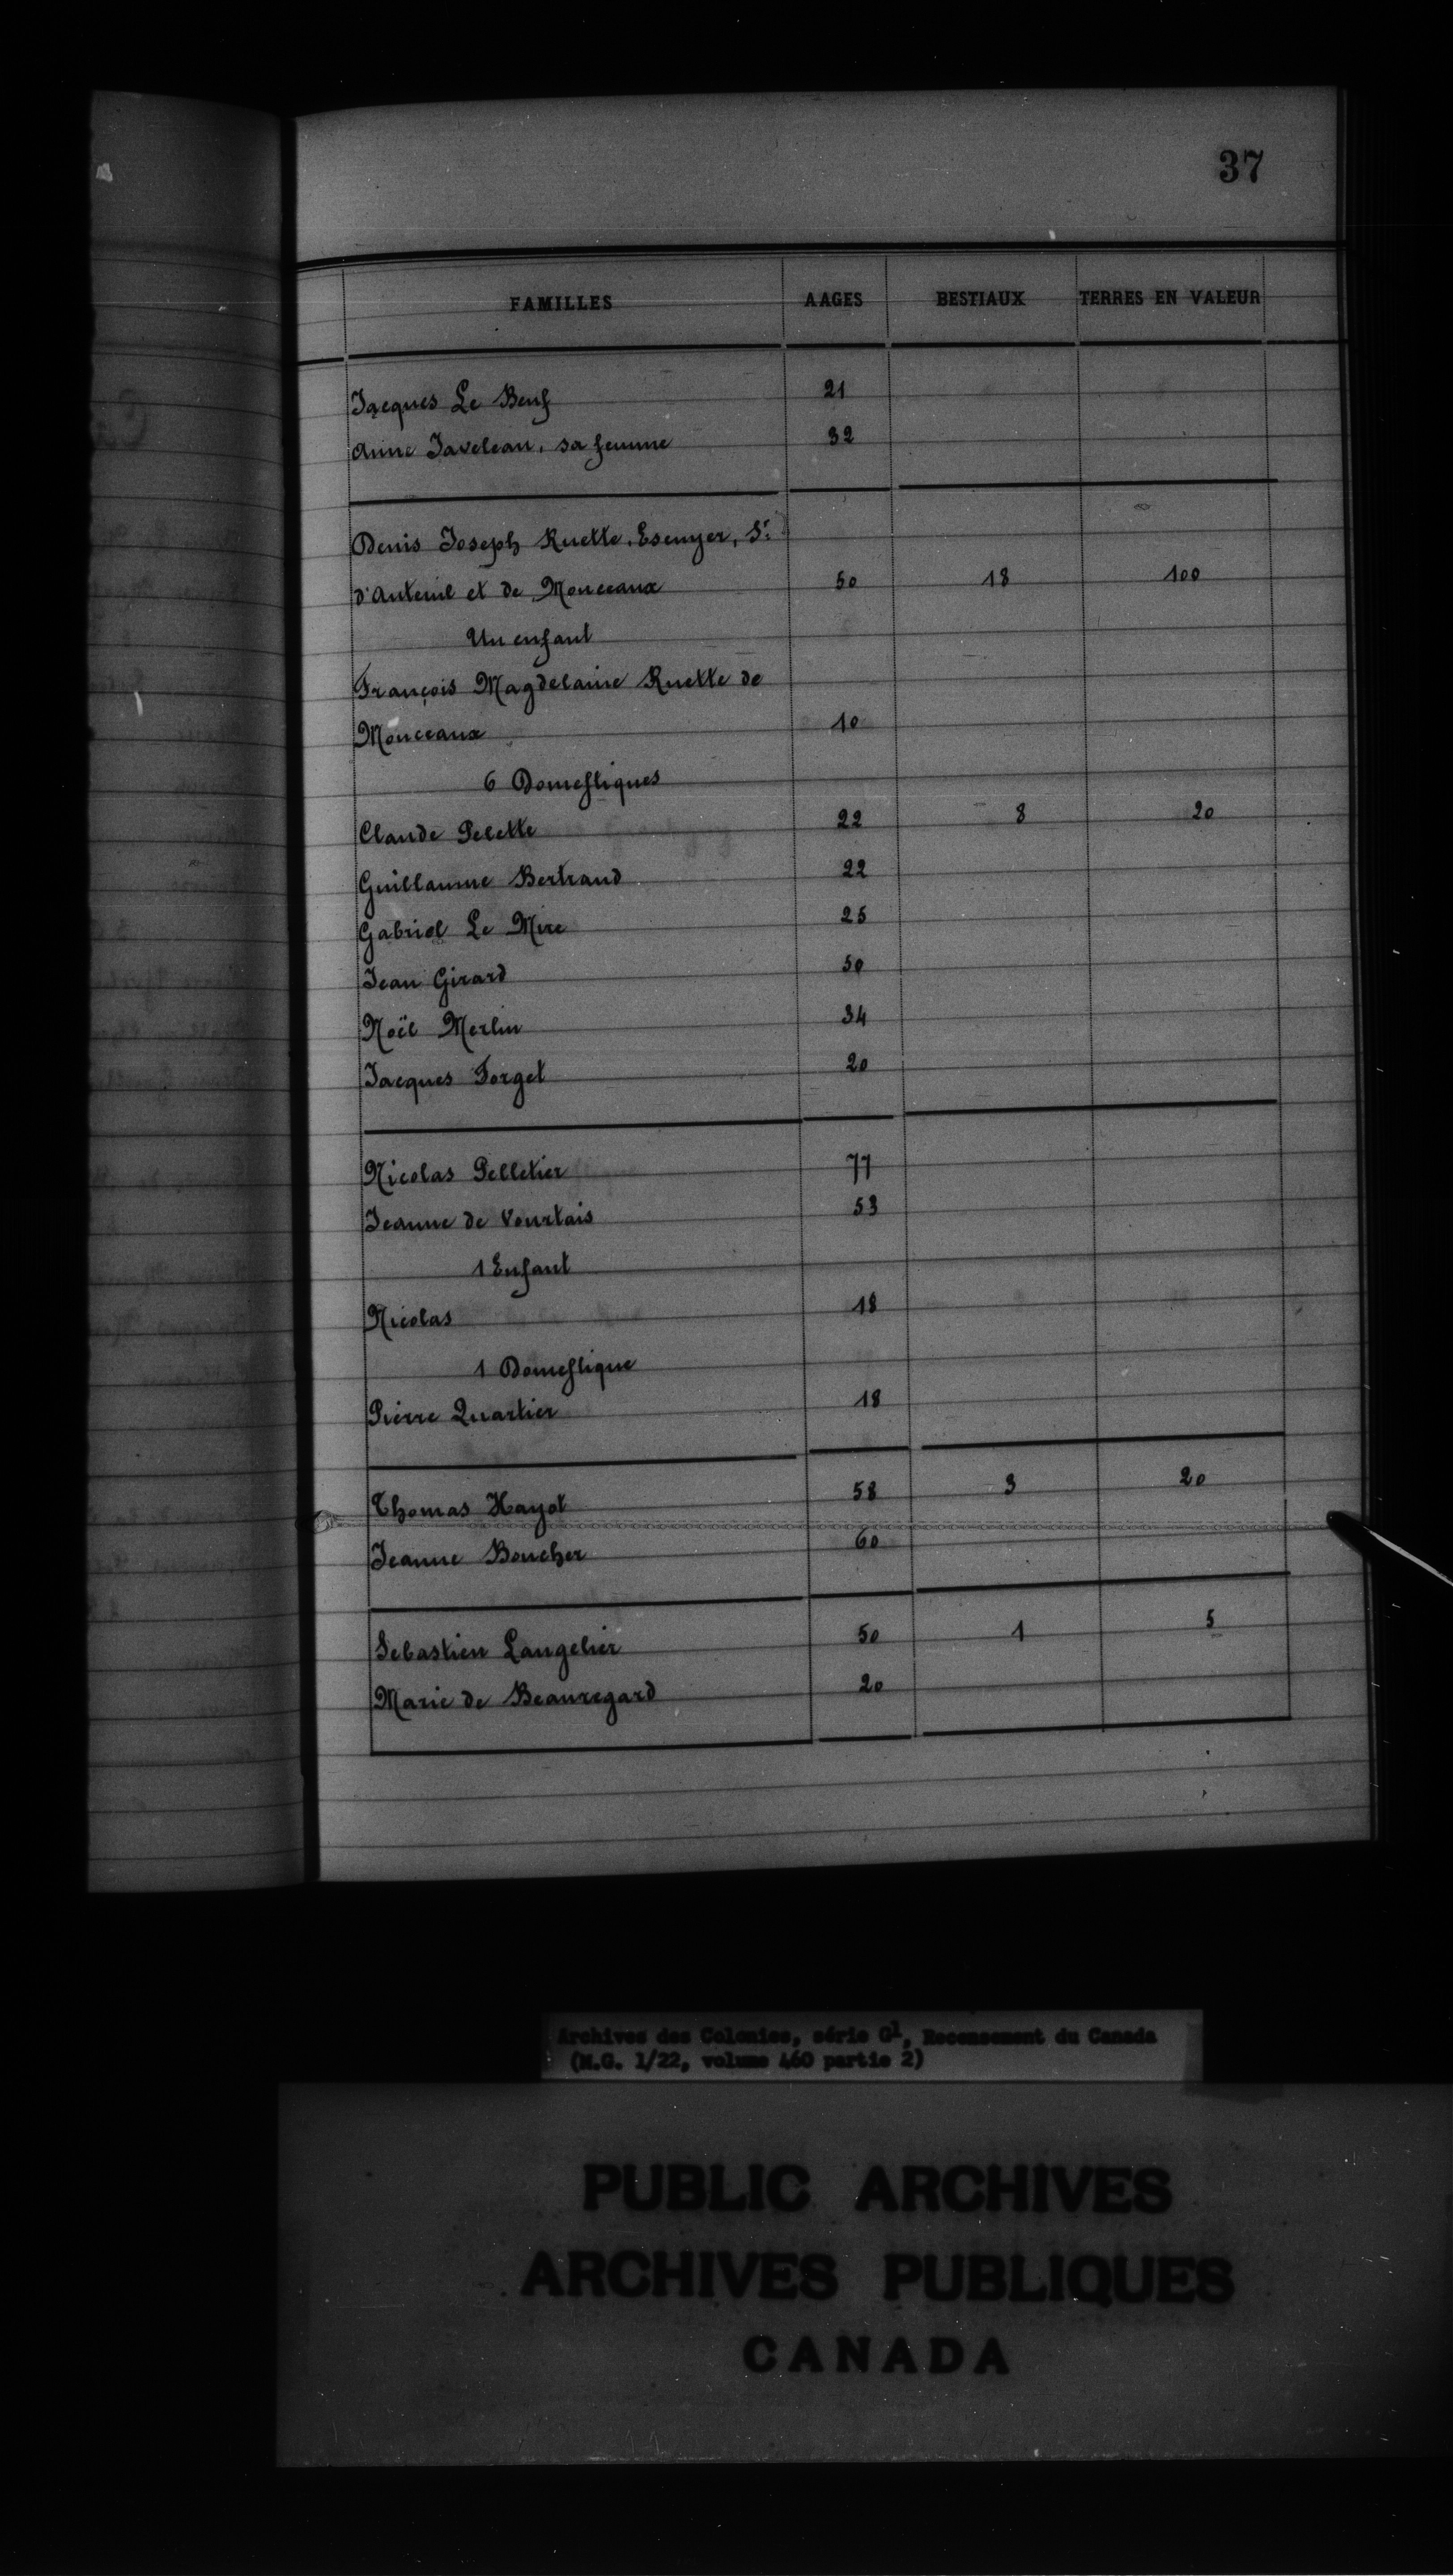 37
FAMILLES AAGES BESTIAUX TERRES EN VALEUR
Jacques Le Beuf 21
Anne Javeleau, sa femme 32
Denis Joseph Ruette, Escuyer, Sr.
d'Auteuil et de Monceaux 50 18 100
Un enfant
François Magdelaine Ruette de
Monceaux 10
6 Domestiques
Claude Pelette 22 8 20
Guillaume Bertrand 22
Gabriel Le Mire 25
Jean Girard 50
Noël Merlin 34
Jacques Forget 20
Nicolas Pelletier 77
Jeanne de Vourtais 53
1 Enfant
Nicolas 18
1 Domestique
Pierre Quartier 18
Thomas Hayot 58 3 20
Jeanne Boucher 60
Sebastien Langelier 50 1 5
Marie de Beauregard 20
Archives des Colonies, série G1, Recensement du Canada
(M.G. 1/22, volume 460 partie 2)
PUBLIC ARCHIVES
ARCHIVES PUBLIQUES
CANADA